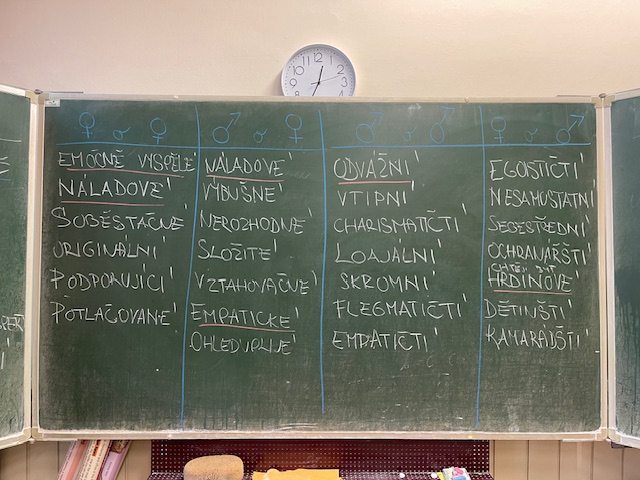 ♀ o ♀
EMOČNĚ VYSPĚLÉ
NÁLADOVÉ
SOBĚSTAČNÉ
ORIGINÁLNÍ
PODPORUJÍCÍ
POTLAČOVANÉ
♂ o ♀
NÁLADOVÉ
VÝBUŠNÉ
NEROZHODNÉ
SLOŽITÉ
VZTAHOVAČNÉ
EMPATICKÉ
OHLEDUPLNÉ
♂ o ♂
ODVÁŽNÍ
VTIPNÍ
CHARISMATIČTÍ
LOAJÁLNÍ
SKROMNÍ
FLEGMATIČTÍ
EMPATIČTÍ
♀ o ♂
EGOISTIČTÍ
NESAMOSTATNÍ
SEBESTŘEDNÍ
OCHRANÁŘŠTÍ
CHTĚJÍ BÝT
HRDINOVÉ
DĚTINŠTÍ
KAMARÁDŠTÍ
12